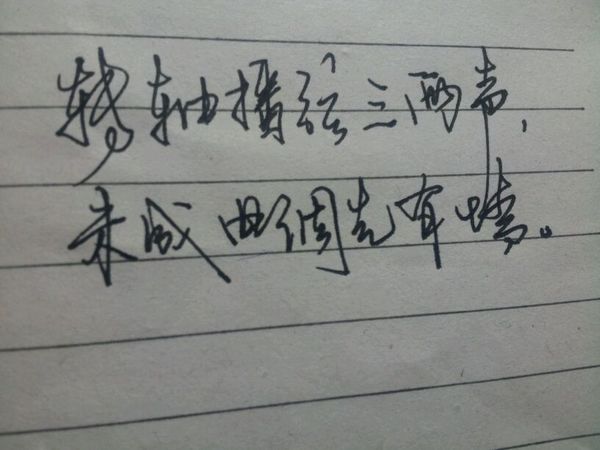 转轴播弦三两声,
未成曲调先有情。